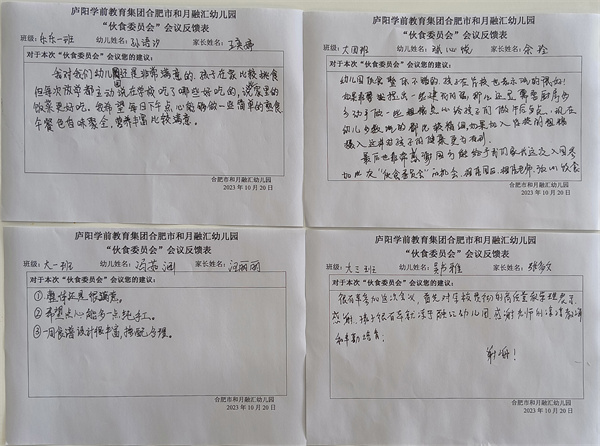 庐阳学前教育集团合肥市和月融汇幼儿园
“伙食委员会”会议反馈表
班级：乐乐一班 幼儿姓名：孙语汐 家长姓名：
对于本次“伙食委员会”会议您的建议：
我对我们幼儿园还是非常满意的，孩子在家比较挑食
但每次放学都主动说在学校吃了哪些好吃的，说家里的
饭菜更好吃。我希望每日下午点心能够做一些简单的面食
午餐色香味聚全，营养丰富比较满意。
合肥市和月融汇幼儿园
2023 年 10 月 20 日
庐阳学前教育集团合肥市和月融汇幼儿园
“伙食委员会”会议反馈表
班级：大四班 幼儿姓名： 家长姓名：余玲
对于本次“伙食委员会”会议您的建议：
幼儿园伙食整体不错的，孩子在学校也表示吃的很好！
如果非要提出一些建议的话，那就还是希望厨房多
多动手做一些粗粮点心给孩子们做午后点心，现在
幼儿多数吃的都比较精细，如果加入些许的粗粮
摄入这样对孩子们的健康更为有利。
最后也非常感谢园方能给予我们家长这次入园参
加此次“伙食委员会”的机会，
合肥市和月融汇幼儿园
2023 年 10 月 20 日
庐阳学前教育集团合肥市和月融汇幼儿园
“伙食委员会”会议反馈表
班级：大一班 幼儿姓名： 家长姓名：汪丽丽
对于本次“伙食委员会”会议您的建议：
①整体还是很满意。
②希望点心能多一点纯手工。
③一周食谱设计很丰富，搭配合理。
合肥市和月融汇幼儿园
2023 年 10 月 20 日
庐阳学前教育集团合肥市和月融汇幼儿园
“伙食委员会”会议反馈表
班级：大三班 幼儿姓名： 家长姓名：
对于本次“伙食委员会”会议您的建议：
很有幸参加这次会议，首先对学校食物的高质量家长很放心
感谢，孩子很有幸就读于融汇幼儿园，感谢老师们
和辛勤培育。
谢谢！
合肥市和月融汇幼儿园
2023 年 10 月 20 日